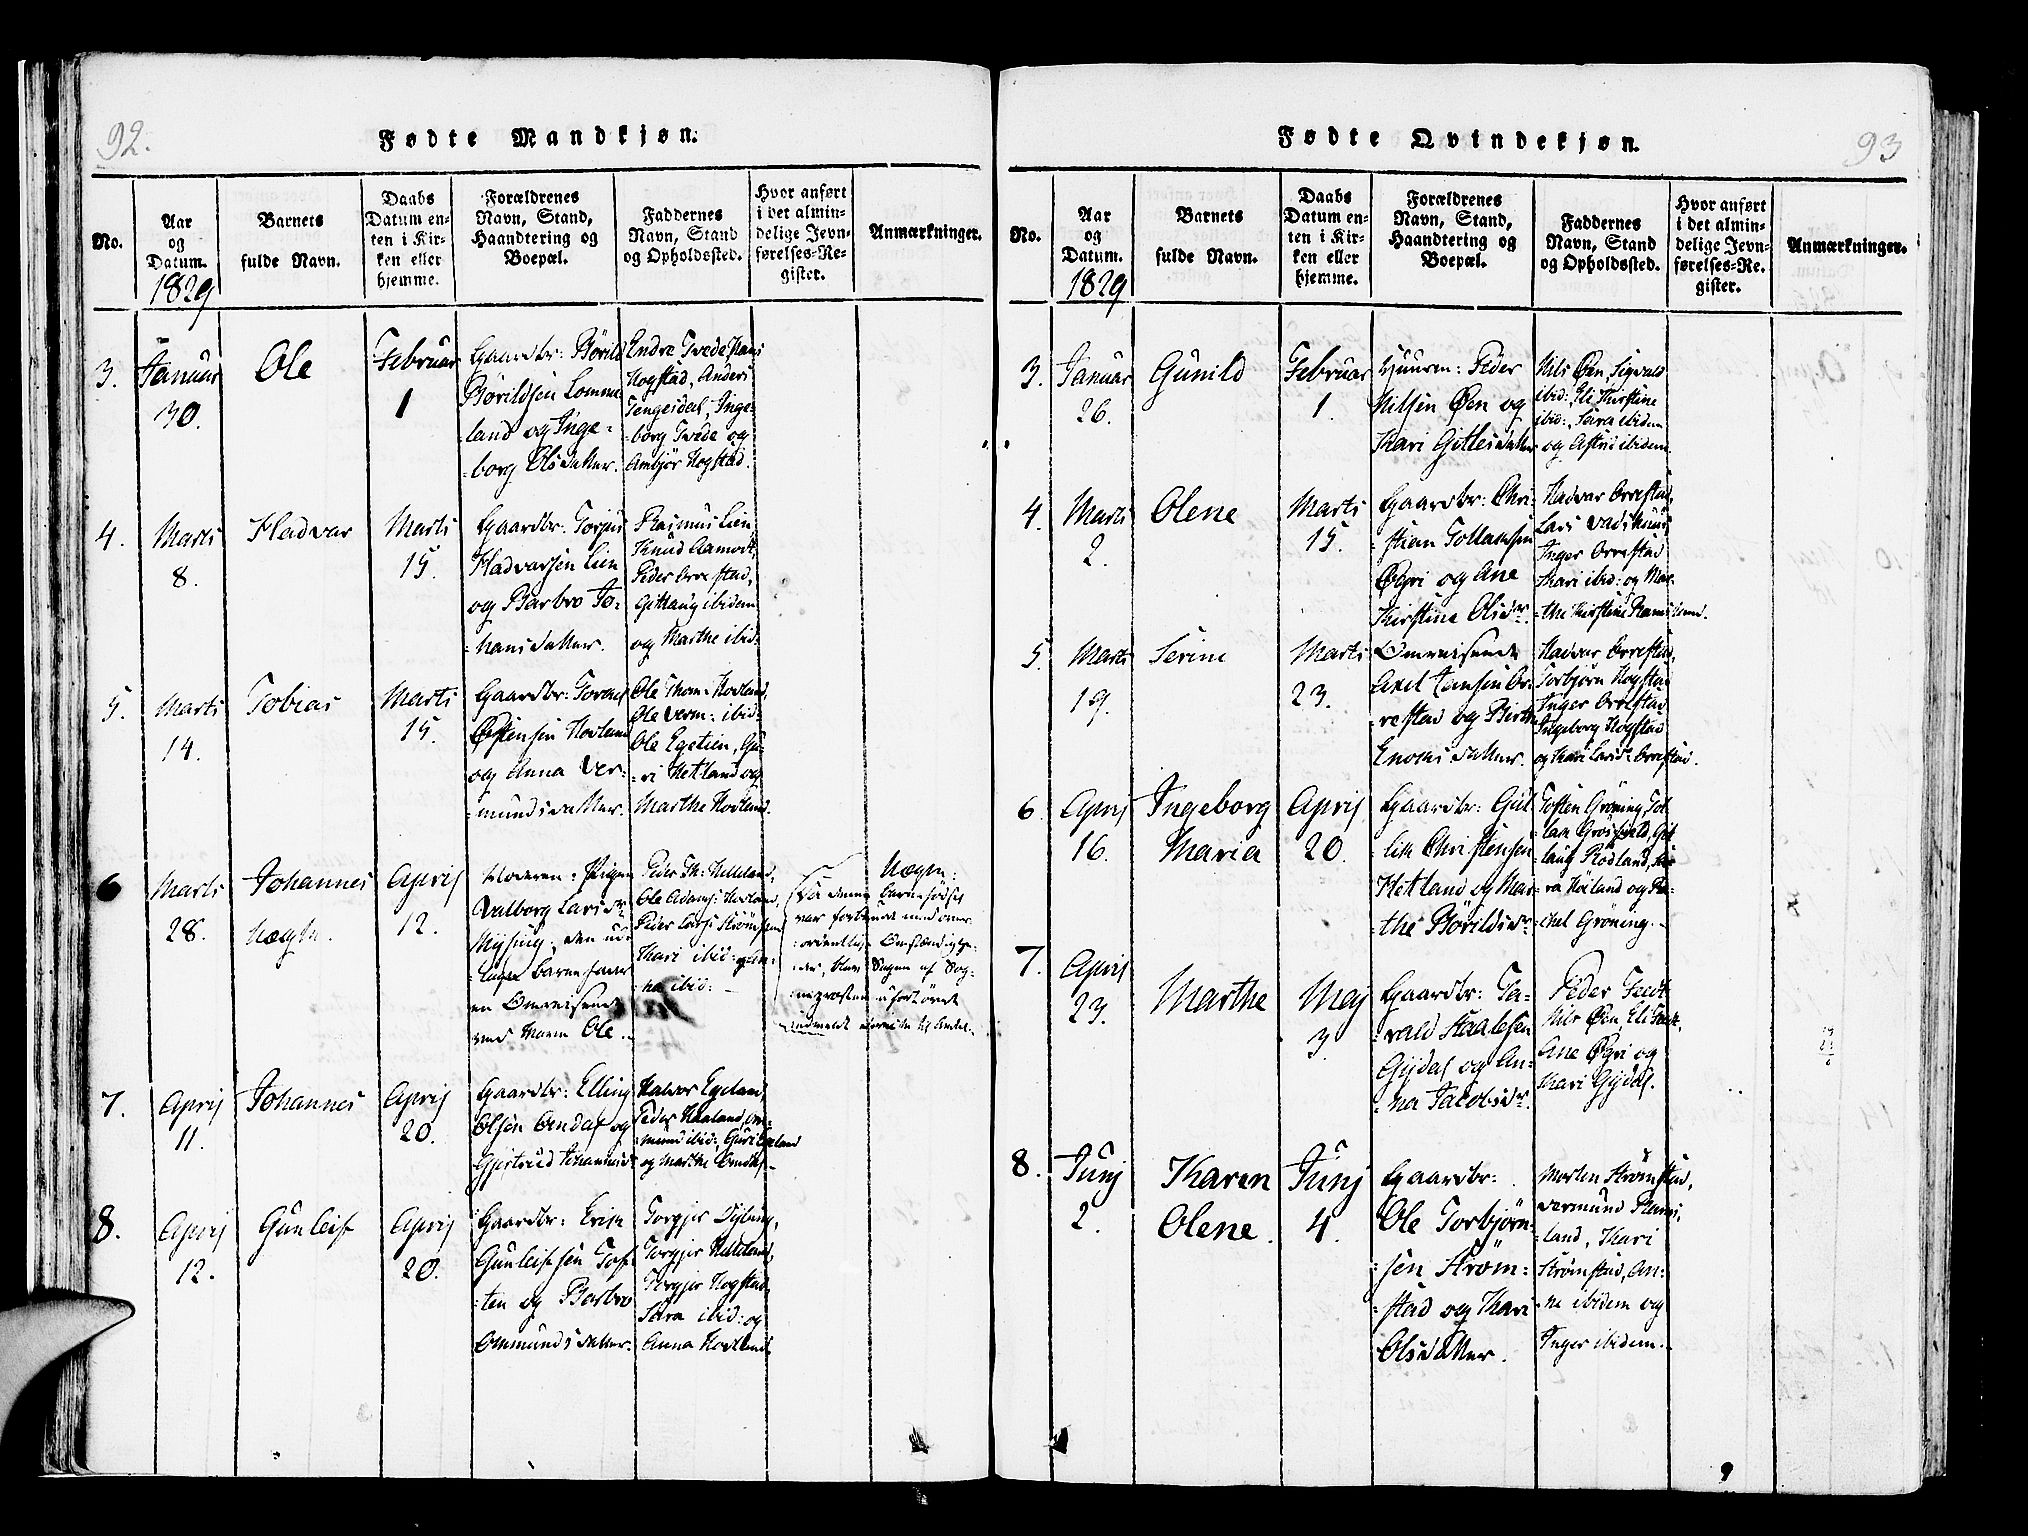 92.
Fødte Mandkjøn.
No.
Aar
og
Datum.
1829
Barnets
fulde Navn.
Daabs
Datum en-
ten i Kir-
ken eller
hjemme.
Forældrenes
Navn, Stand,
Haandtering og
Boepæl.
Faddernes
Navn, Stand
og Opholdssted.
Hvor anført
i det almin-
delige Jevn-
førelses-Re-
gister.
Anmærkninger.
3.
Januar
30.
Ole
Februar
1
Gaardbr: Börild
Börildsen Lomme-
-land og Inge-
-borg Olsdatter.
Endre Tvede, Hans
Hogstad, Anders
Tengesdal, Inge-
-borg Tvede og
Ambjör Hogstad.
4.
Marts
8.
Hadvar
Marts
15.
Gaardbr: Torjus
Hadvarsen Lien
og Barbro Jo-
-hansdatter.
Rasmus Lien,
Knud Aamodt,
Peder Orrestad,
Gitlaug ibidem
og Marthe ibid:
5.
Marts
14.
Tobias
Marts
15.
Gaardbr:
Østensen Hovland
og Anna Ver-
-mundsdatter.
Ole Thom: Hovland,
Ole Verm: ibid:
Ole Egelien, Gu-
-ri Hetland og
Marthe Hovland.
6
Marts
28.
Johannes
Uægte.
Aprij
12.
Moderen: Pigen
Valborg Larsdr
Mysing; den ud-
-lagte Barnefader
en Omreisende
ved Navn Ole.
Peder Th: Helleland,
Ole Adams: Hovland,
Peder Lars:
Kari ibid: og An-
-na ibid:
Uægte:
Da denne Barnefödsel
var forbundet med over-
-ordentlige Omstændighe-
-der, blev Sagen af Sog-
-nepræsten
indmeldt
7.
Aprij
11.
Johannes
Aprij
20.
Gaardbr: Elling
Olsen Omdal og
Gjertrud Johannisdr
Halvor Egeland,
Peder Haaland, Ver-
-mund ibid:, Guri Egeland
og Marthe Omdal.
8.
Aprij
12.
Gunleif
Aprij
20.
Gaardbr: Erik
Gunleifsen Tof-
-ten og Barbro
Ommundsdatter.
Torgjer
Torgjer Helleland,
Torgjer Hogstad,
Sara ibid: og
Anna Hovland
Fødte Qvindekjøn.
93
No.
Aar
og
Datum.
1829
Barnets
fulde Navn.
Daabs
Datum en-
ten i Kir-
ken eller
hjemme.
Forældrenes
Navn, Stand,
Haandtering og
Boepæl.
Faddernes
Navn, Stand
og Opholdssted.
Hvor anført
i det almin-
delige Jevn-
førelses-Re-
gister.
Anmærkninger.
3.
Januar
26.
Gunild
Februar
1.
Huusm: Peder
Nilsen Øen og
Kari Gitlesdatter
Nils Øen, Sigvald
ibid:, Eli Kirstine
ibid:, Sara ibidem
og Astri ibidem.
4.
Marts
2.
Olene
Marts
15.
Gaardbr: Chri-
-stian Tollaksen
Øgri og Ane
Kirstine Olsdr.
Hadvar Orrestad,
Lars
Inger Orrestad
Kari ibid: og Mar-
-the Kirstine Ramsland.
5.
Marts
19.
Serine
Marts
23.
Omreisende
Axel Jansen Or-
-restad og Birthe
Enoksdatter.
Hadvar Orrestad,
Torbjörn Hogstad
Inger Orrestad
Ingeborg Hogstad
og Kari Larsdr Orrestad.
6
Aprij
16.
Ingeborg
Maria
Aprij
20.
Gaardbr: Gul-
lik Christensen
Hetland og Mar-
-the Börildsdr
Tosten Gröning, Tol-
-lak Grösfjeld, Git-
laug Rodland, Sa-
ra Höiland og Ra-
-chel Gröning.
7.
Aprij
23.
Marthe
Maj
3.
Gaardbr: Ta-
-rald Staalesen
Gyjdal og An-
-na Jacobsdr.
Peder
Nils Øen, Eli
Ane Øgri og
Kari Gyjdal.
8.
Junj
2.
Karen
Olene.
Junj
4.
Gaardbr:
Ole Torbjörn-
-sen Ström-
-stad og Kari
Olsdatter.
Morten Strömstad,
Vermund Rams-
-land, Kari
Strömstad, An-
-ne ibidem og
Inger ibidem.